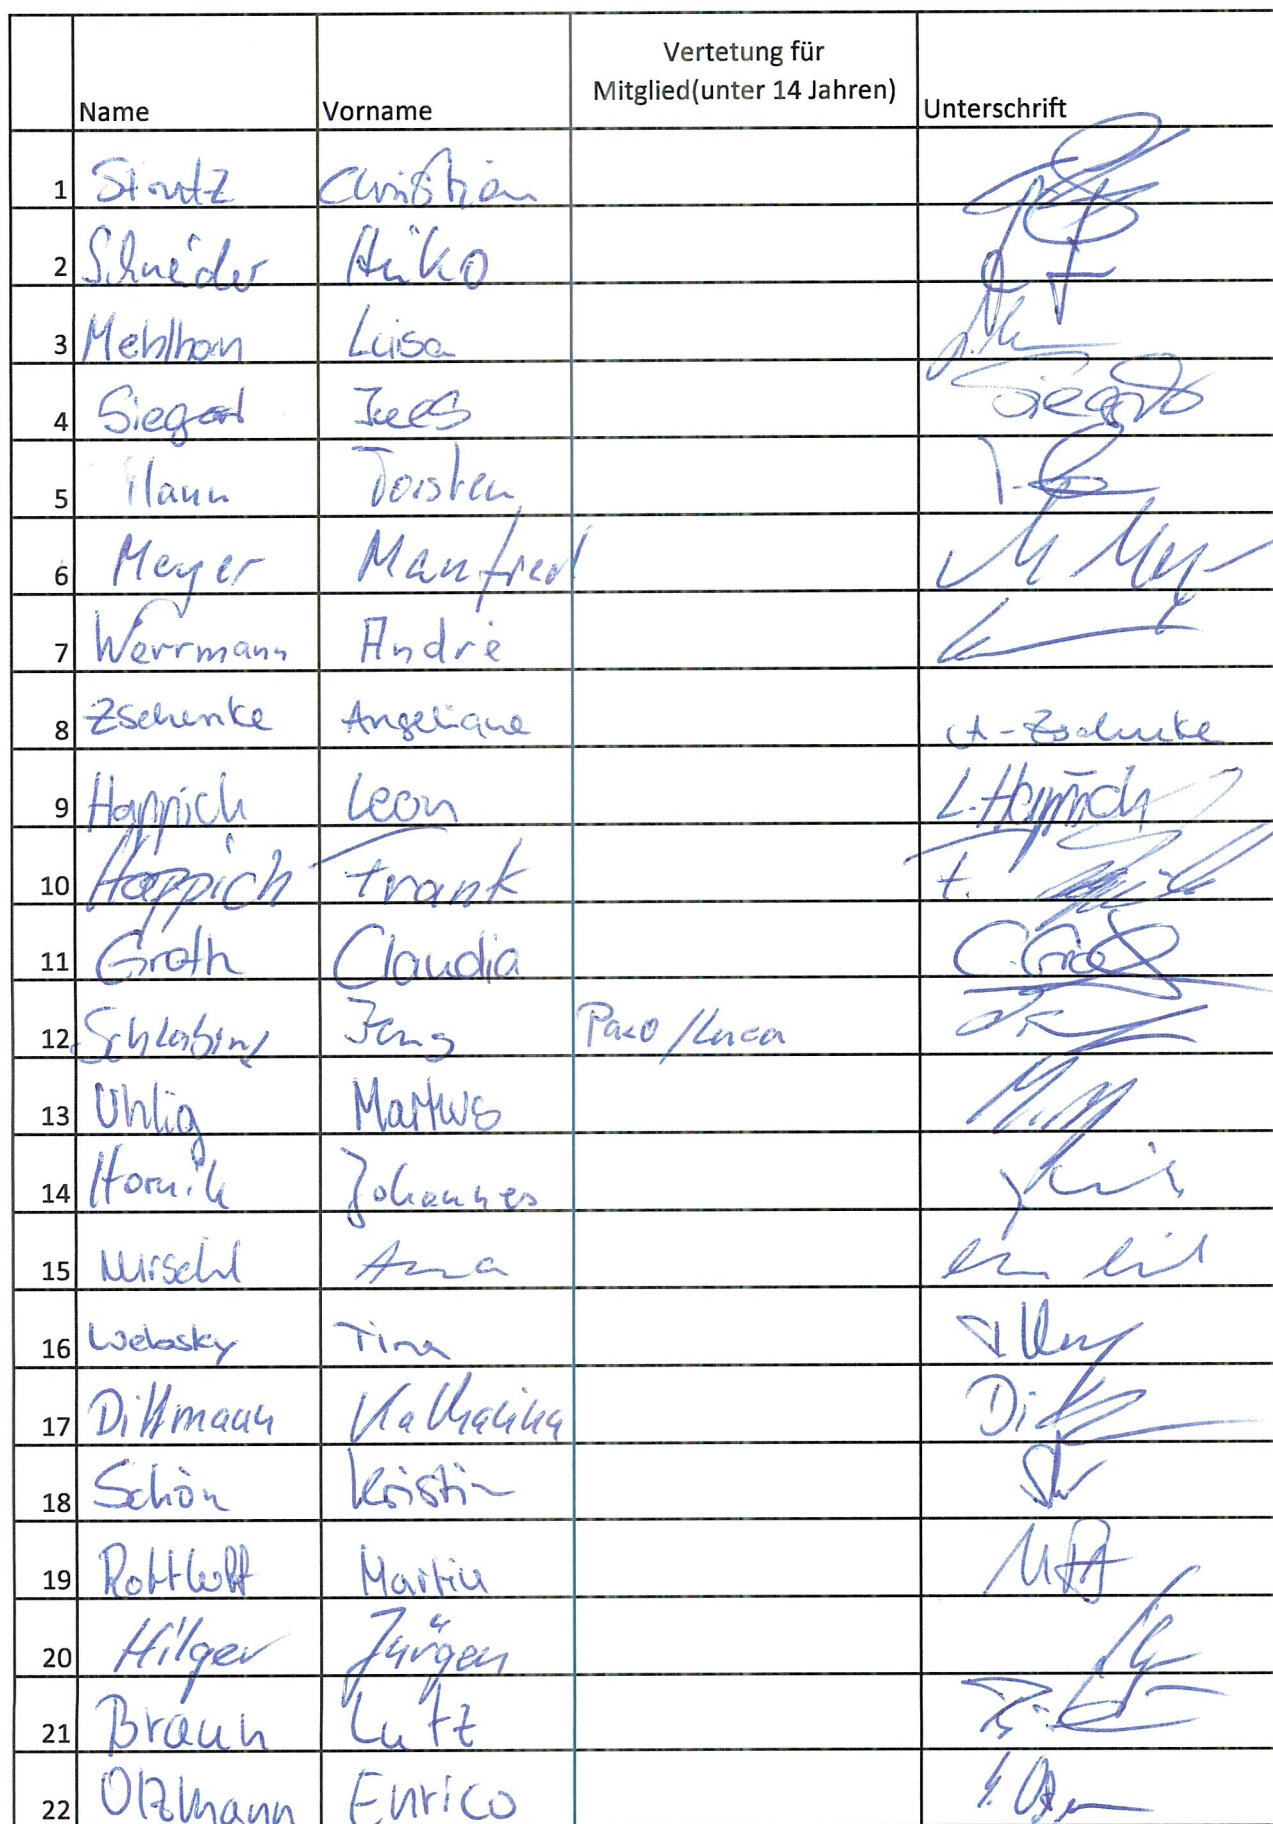 Vertetung für
Mitglied(unter 14 Jahren)
Name Vorname Unterschrift
1 Christian
2 Schneider Heiko
3 Mehlhorn Luisa
4 Siegert Ines Siegert
5 Torsten
6 Meyer Manfred M Mey
7 Werrmann Andrè
8 Zschenke Angeliane A-Zschenke
9 Happich Leon L.Happich
10 Happich Frank F.
11 Groth Claudia C.Groth
12 Jens Paco/Luca
13 Uhlig Markus
14 Hornik Johannes
15 Anna
16 Webasky Tina
17 Dittmann Katharina
18 Schön Kristin
19 Martin
20 Hilger Jürgen
21 Braun Lutz
22 Olzmann Enrico